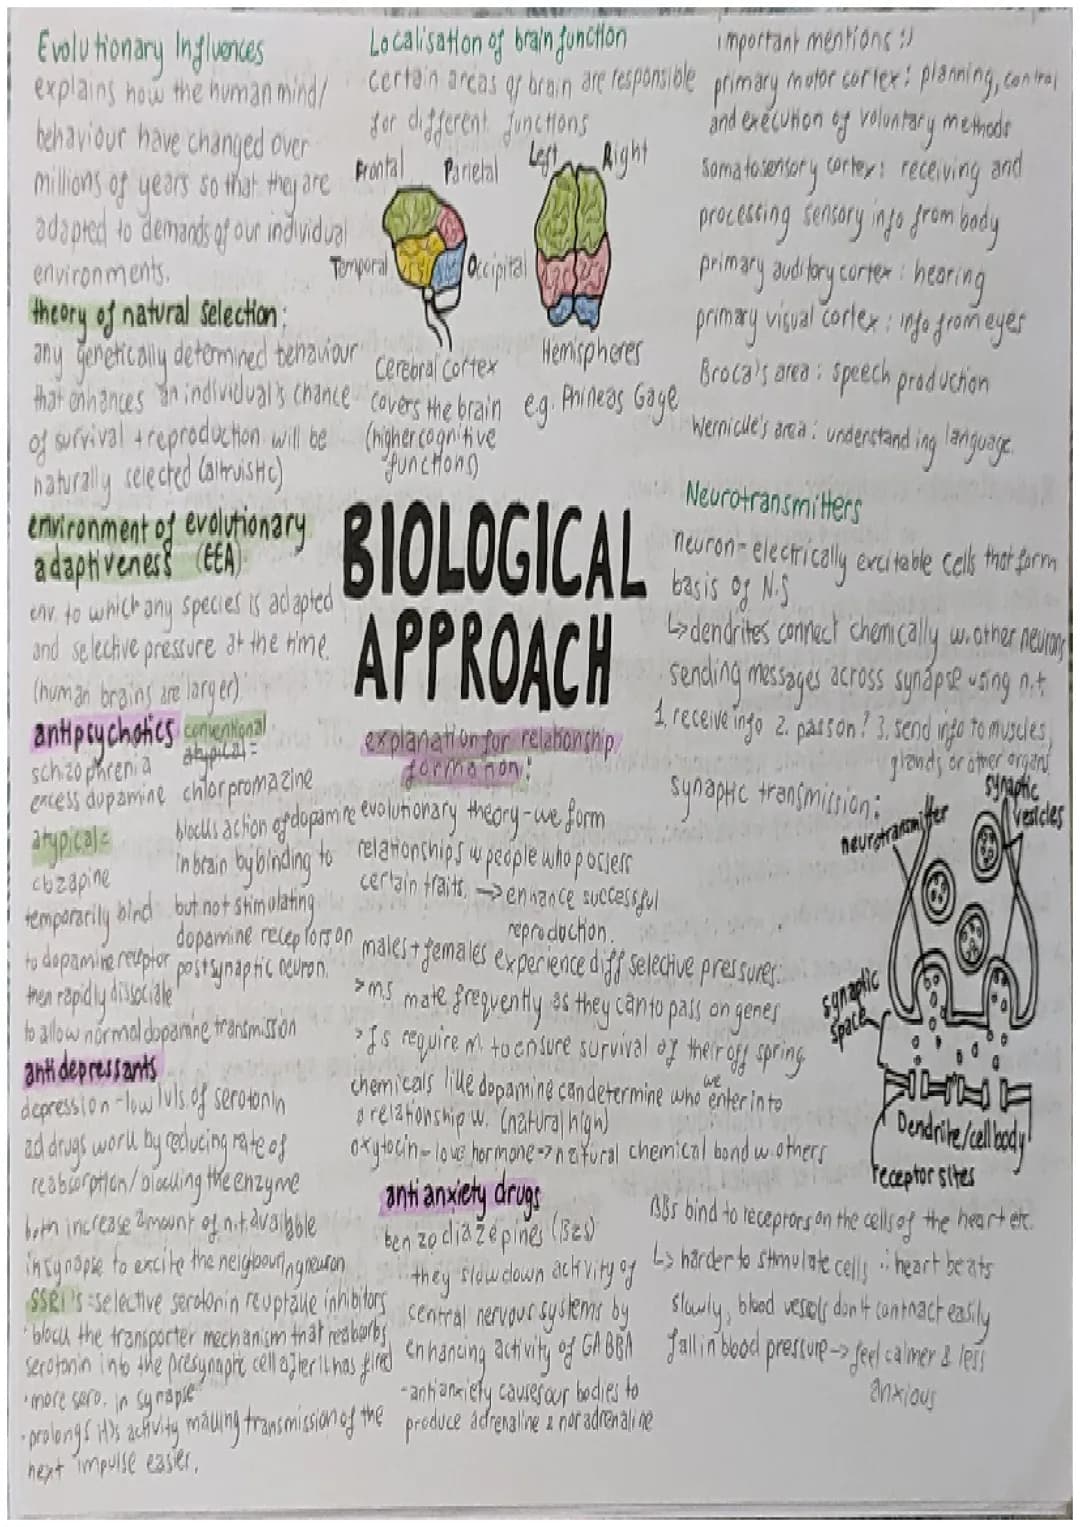 Evolutionary Influences
explains how the human mind/
behaviour have changed over
millions of years so that they are
adapted to demands of our individual
environments.
theory of natural selection:
any genetically determined behaviour
that enhances an individual's chance
of survival + reproduction will be
naturally selected (altruistic)
environment of evolutionary
adaptiveness (EEA)
env. to which any species is adapted
and selective pressure at the time.
(human brains are larger)
antipsychotics
schizophrenia
excess dopamine
atypical =
clozapine
temporarily bind
to dopamine receptor
then rapidly dissociate
to allow normal dopamine transmission
conventional
atypical =
chlorpromazine
blocks action of dopamine
in brain by binding to
but not stimulating
dopamine receptors on
postsynaptic neuron.
antidepressants
depression - low lvls. of serotonin
ad drugs work by reducing rate of
reabsorption/blocking the enzyme
both increase amount of n.t available
in synapse to excite the neighbouring neuron
SSRI's = selective serotonin reuptake inhibitors
· block the transporter mechanism that reabsorbs
serotonin into the presynaptic cell after it has fired
· more sero. in synapse
· prolongs its activity making transmission of the
next impulse easier.
Localisation of brain function
certain areas of brain are responsible
for different functions
Frontal
Parietal
Temporal
Occipital
Left
Right
Cerebral cortex
covers the brain
(higher cognitive
functions)
Hemispheres
e.g. Phineas Gage
BIOLOGICAL
APPROACH
explanation for relationship
formation:
evolutionary theory - we form
relationships w people who possess
certain traits. → enhance successful
reproduction.
males + females experience diff selective pressures:
> ms mate frequently as they can to pass on genes
> fs require m. to ensure survival of their off spring
chemicals like dopamine can determine who we enter into
a relationship w. (natural high)
oxytocin - love hormone → natural chemical bond w. others
anti anxiety drugs
benzodiazepines (BZs)
they slow down activity of
central nervous systems by
enhancing activity of GABBA
- anti anxiety causes our bodies to
produce adrenaline & noradrenaline
important mentions :)
primary motor cortex: planning, control
and execution of voluntary methods
somatosensory cortex: receiving and
processing sensory info from body
primary auditory cortex: hearing
primary visual cortex: info from eyes
Broca's area: speech production
Wernicke's area: understanding language.
Neurotransmitters
neuron - electrically excitable cells that form
basis of N.S
↳ dendrites connect chemically w. other neurons
sending messages across synapse using n.t
1. receive info 2. pass on? 3. send info to muscles,
glands or other organs
synaptic transmission:
neurotransmitter
synaptic
vesicles
synaptic
space
Dendrite/cell body
receptor sites
BBs bind to receptors on the cells of the heart etc.
↳ harder to stimulate cells ∴ heart beats
slowly, blood vessels don't contract easily
fall in blood pressure → feel calmer & less
anxious